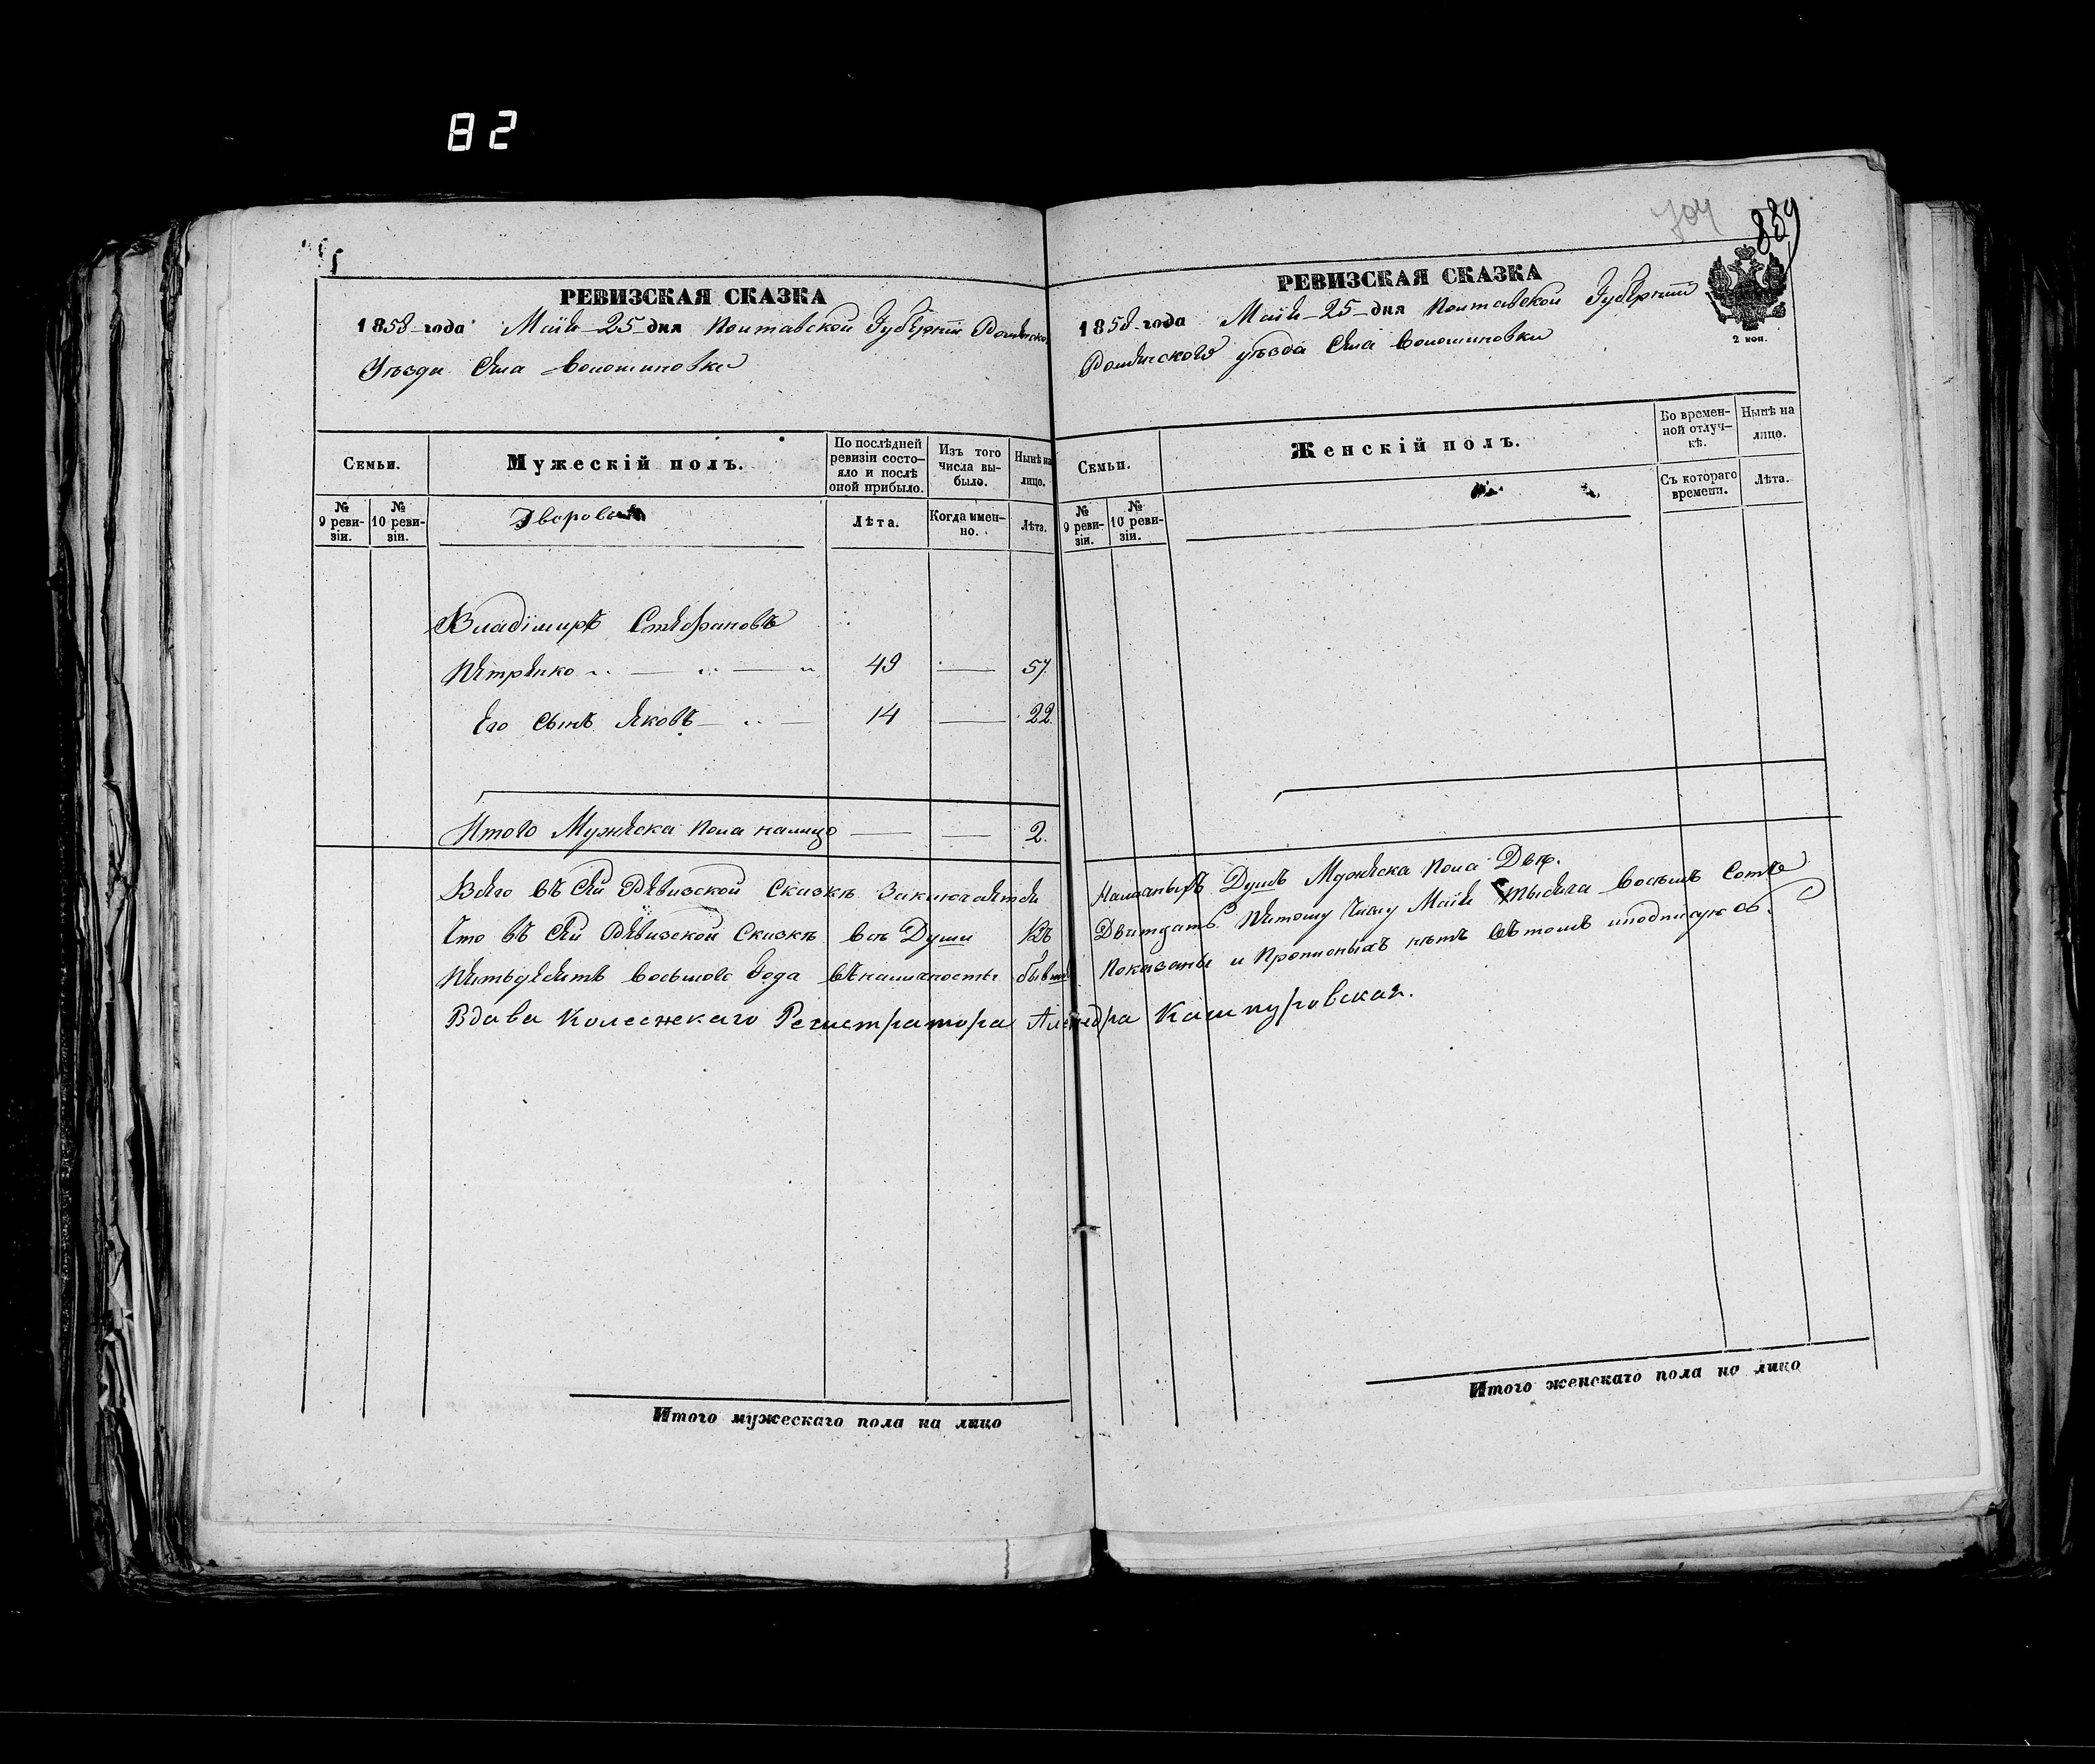 82
704
889
РЕВИЗСКАЯ СКАЗКА
1858 года Маія 25 дня Полтавской Губерніи Роменского
Уезда Села Волошиновки
Семьи.
Мужескій полъ.
По послѣдней ревизіи состояло и послѣ оной прибыло.
Изъ того числа выбыло.
Нынѣ на лицо.
№ 9 ревизіи.
№ 10 ревизіи.
Дворовые
Лѣта.
Когда именно.
Лѣта.
Владіміръ Стефановъ
Петренко 49 57
Его сынъ Яковъ 14 22
Итого Мужеска пола налицо 2.
Всего въ сей Ревизской Сказкѣ Заключается
Что въ сей Ревизской Сказкѣ всѣ Души Къ
Пятьдесятъ восьмого Года въ наличности бывшія
Вдова Колежскаго Регистратора
Итого мужескаго пола на лицо
РЕВИЗСКАЯ СКАЗКА
1858 года Маія 25 дня Полтавской Губерніи
Роменского уѣзда Села Волошиновки
2 коп.
Семьи.
Женскій полъ.
Во временной отлучкѣ.
Нынѣ на лицо.
№ 9 ревизіи.
№ 10 ревизіи.
Съ котораго времени.
Лѣта.
Наличныхъ Душъ Мужеска пола Двѣ.
Двитцать Пятому Числу Маія Тысяча Восемъ Сотъ
Показаны и Прописныхъ нѣтъ вътомъ иподписуюсь.
Кашпуровская.
Итого женскаго пола на лицо